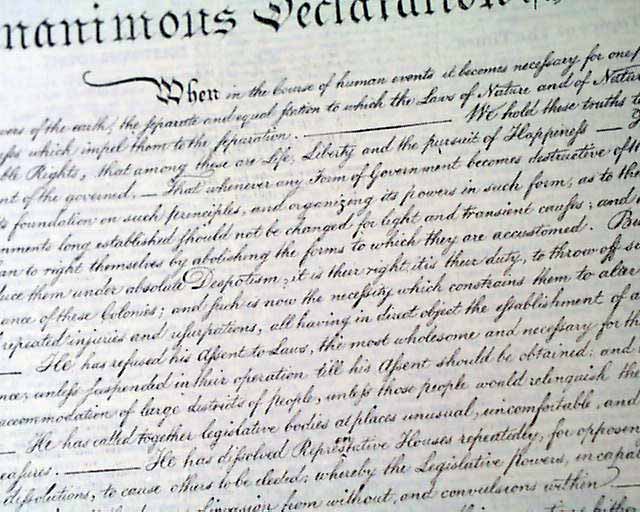 nanimous Declaration
When in the Course of human events it becomes necessary for one
wers of the earth, the separate and equal station to which the Laws of Nature and of Nature
which impel them to the separation. We hold these truths to
ble Rights, that among these are Life, Liberty and the pursuit of Happiness —
nt of the governed, — That whenever any Form of Government becomes destructive of
ts foundation on such principles, and organizing its powers in such form, as to the
nments long established should not be changed for light and transient causes; and
an to right themselves by abolishing the forms to which they are accustomed. Bu
duce them under absolute Despotism, it is their right, it is their duty, to throw off
ance of these Colonies; and such is now the necessity which constrains them to alter
repeated injuries and usurpations, all having in direct object the establishment of
— He has refused his Assent to Laws, the most wholesome and necessary for the
unless suspended in their operation till his Assent should be obtained; and
accommodation of large districts of people, unless those people would relinquish the
— He has called together legislative bodies at places unusual, uncomfortable, and
easures. — He has dissolved Representative Houses repeatedly, for opposin
dissolutions, to cause others to be elected; whereby the Legislative powers, incapab
invasion from without, and convulsions within —